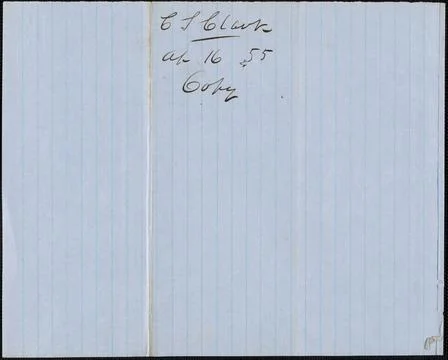 C S Clark
Ap 16 55
Copy